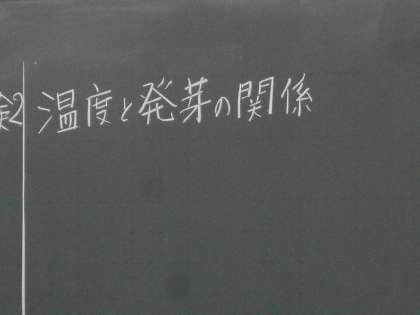 験2 温度と発芽の関係